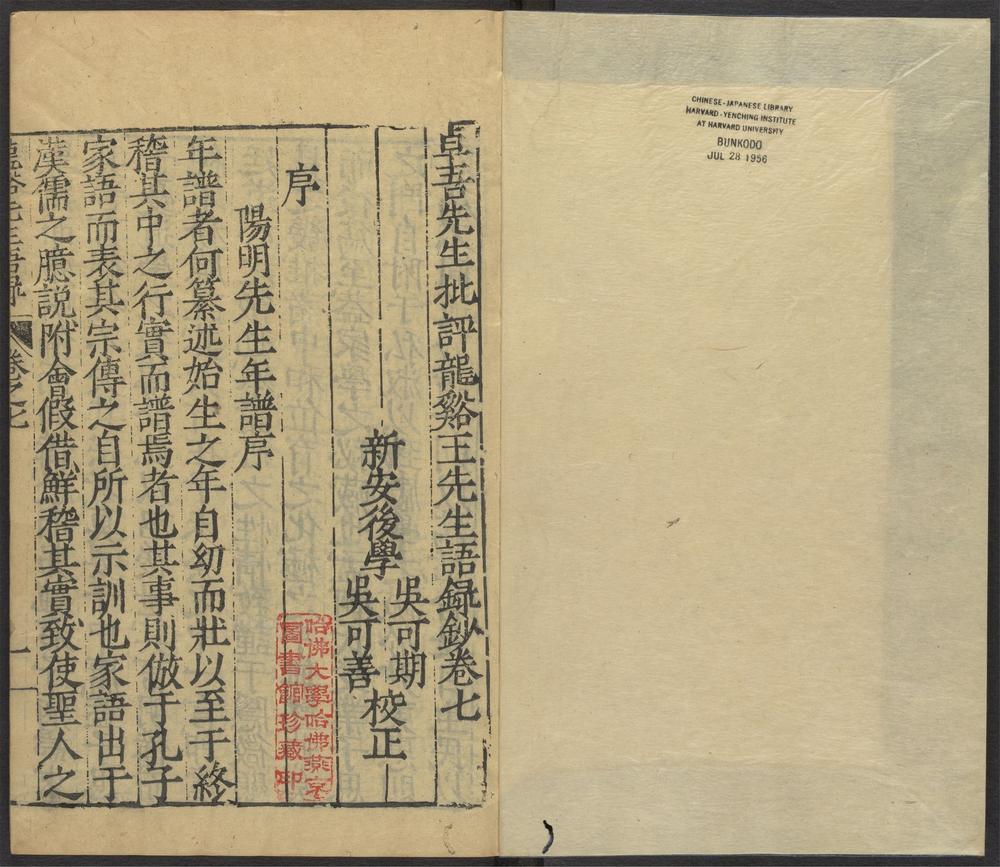 CHINESE-JAPANESE LIBRARY
HARVARD-YENCHING INSTITUTE
AT HARVARD UNIVERSITY
BUNKODO
JUL 28 1956
卓吾先生批評龍谿王先生語録鈔卷七
新安後學 吳可期
吳可善 校正
序
陽明先生年譜序
年譜者何纂述始生之年自幼而壯以至于終
稽其中之行實而譜焉者也其事則倣于孔子
家語而表其宗傳之自所以示訓也家語出于
漢儒之臆説附會假借鮮稽其實致使聖人之
龍谿先生語録 卷之七 一
哈佛大學哈佛燕京
圖書館珍藏印